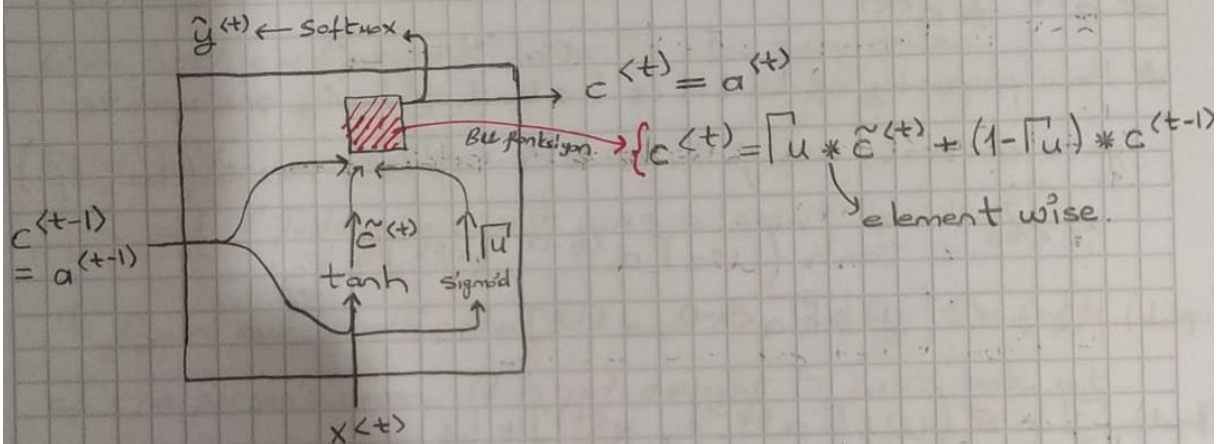 ŷ<t> ← softmax
c<t> = a<t>
Bu fonksiyon. {c<t> = Γu * c̃<t> + (1-Γu) * c<t-1>
element wise.
c<t-1>
= a<t-1>
c̃<t> Γu
tanh sigmoid
x<t>